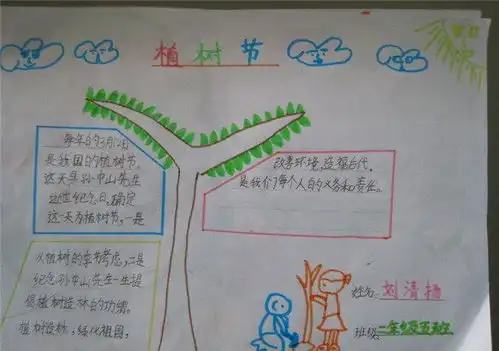 植树节
每年的3月12日
是我国的植树节。
这天是孙中山先生
逝世纪念日。确定
这一天为植树节,一是
从植树的季节考虑,二是
纪念孙中山先生一生提
倡植树造林的功绩。
植树造林,绿化祖国,
改善环境,造福后代。
是我们每个人自的义务和责任。
姓名:刘清扬
班级:二年级五班